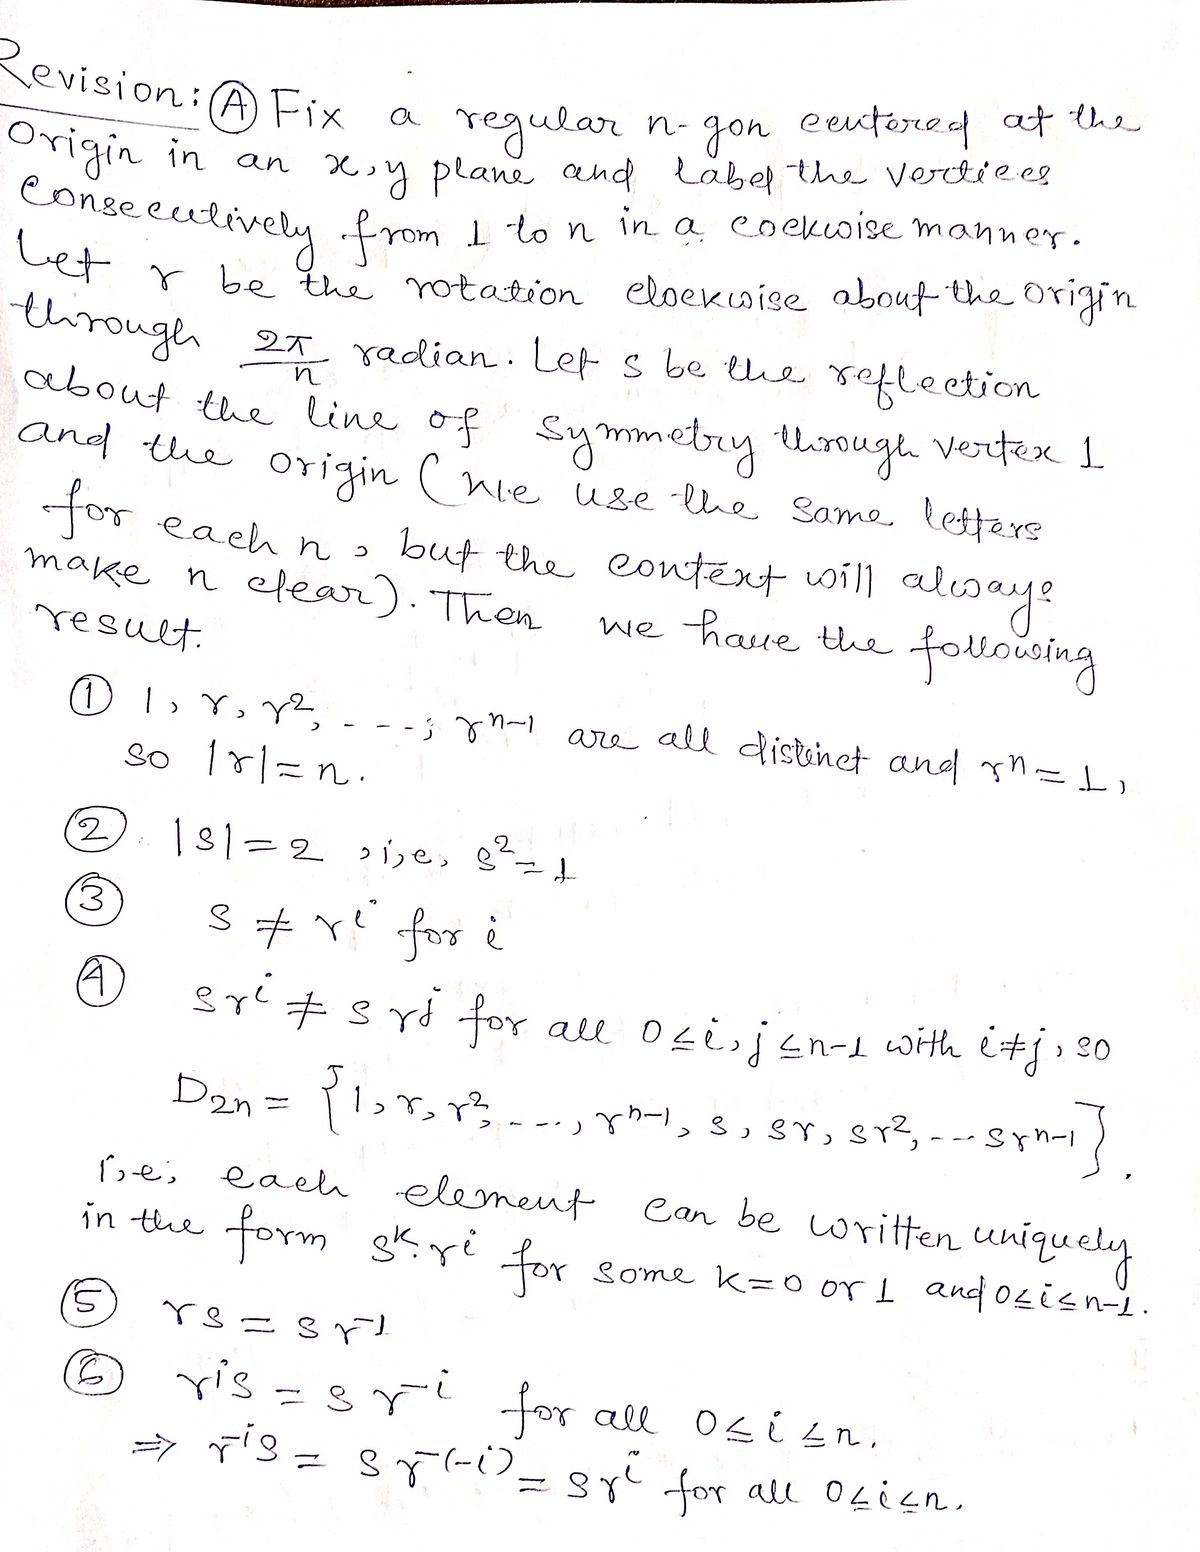 Revision: Ⓐ Fix a regular n-gon centered at the
Origin in an x,y plane and label the vertices
Consecutively from 1 to n in a cockwise manner.
Let r be the rotation clockwise about the origin
through 2π/n radian. Let s be the reflection
about the line of symmetry through vertex 1
and the origin (We use the same letters
for each n, but the context will always
make n clear). Then we have the following
result.
① 1, r, r², ----, rⁿ⁻¹ are all distinct and rⁿ = 1,
so |r| = n.
② |s| = 2, i,e, s² = 1
③ s ≠ rⁱ for i
④ srⁱ ≠ srʲ for all 0 ≤ i, j ≤ n-1 with i ≠ j, so
D₂ₙ = {1, r, r², ---, rⁿ⁻¹, s, sr, sr², --- srⁿ⁻¹}.
i,e, each element can be written uniquely
in the form sᵏ.rⁱ for some k = 0 or 1 and 0 ≤ i ≤ n-1.
⑤ rs = sr⁻¹
⑥ rⁱs = sr⁻ⁱ for all 0 ≤ i ≤ n.
⇒ r⁻ⁱs = sr⁻⁽⁻ⁱ⁾ = srⁱ for all 0 ≤ i ≤ n.